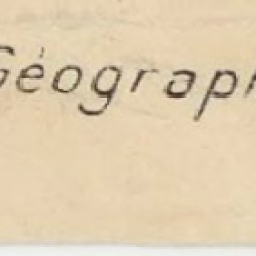 Géograph